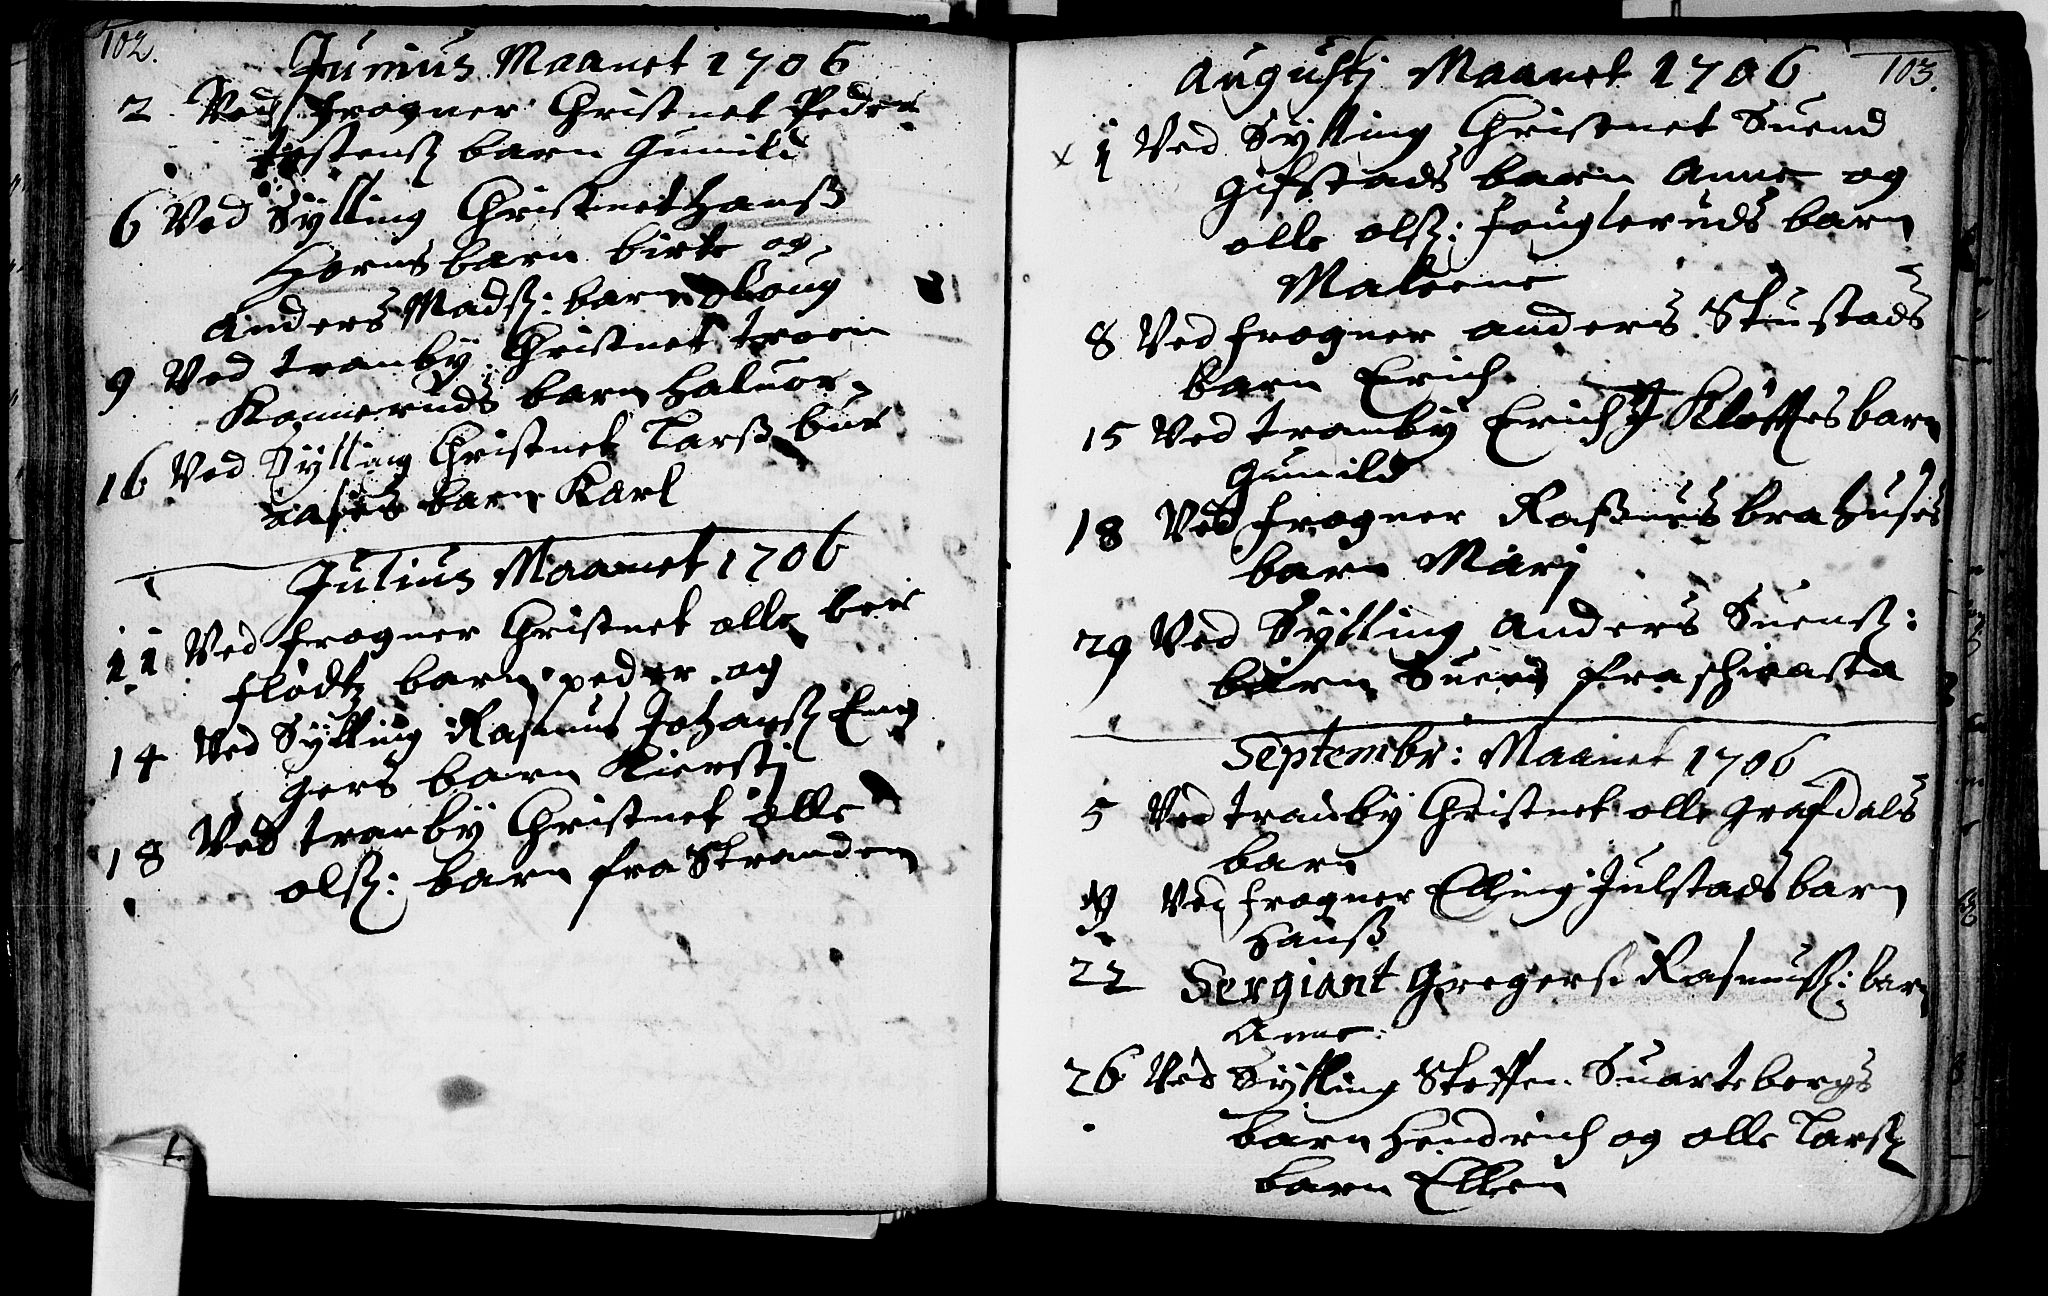 102.
Junius Maanet 1706
2 Ved frogner Christnet Peder
barn Gunild
6 Ved Sylling Christnet Hanß
Horns barn birte og
Anders Madß: barn Aaloug
9 Ved tranby Christnet troen
Kanneruds barn Haluor
16 Ved Sylling Christnet Larß
barn Karl
Julius Maanet 1706
11 Ved frogner Christnet olle
flödtz barn peder og
14 Ved Sylling Rasmus Johanß Eng
gers barn Kierstj
18 Ved tranby Christnet olle
olß: barn fra Stranden
103.
Augustj Maanet 1706
x 1 Ved Sylling Christnet Suend
Gifstads barn Anne og
olle olß: fougleruds barn
Maleene
8 Ved frogner anders Skustads
barn Erich
15 Ved tranby Erich Kløftes barn
Gunild
18 Ved frogner Raßmus brahuses
barn Marj
29 Ved Sylling Anders Suenß:
barn Suend fra
Septembr: Maanet 1706
5 Ved tranby Christnet olle Grafdals
barn
9 Ved frogner Elling Julstads barn
Hanß
22 Sergiant Gregers Rasmusß: barn
Anne.
26 Ved Sylling Steffen Suartebergs
barn Hendrich og olle Larß
barn Ellen